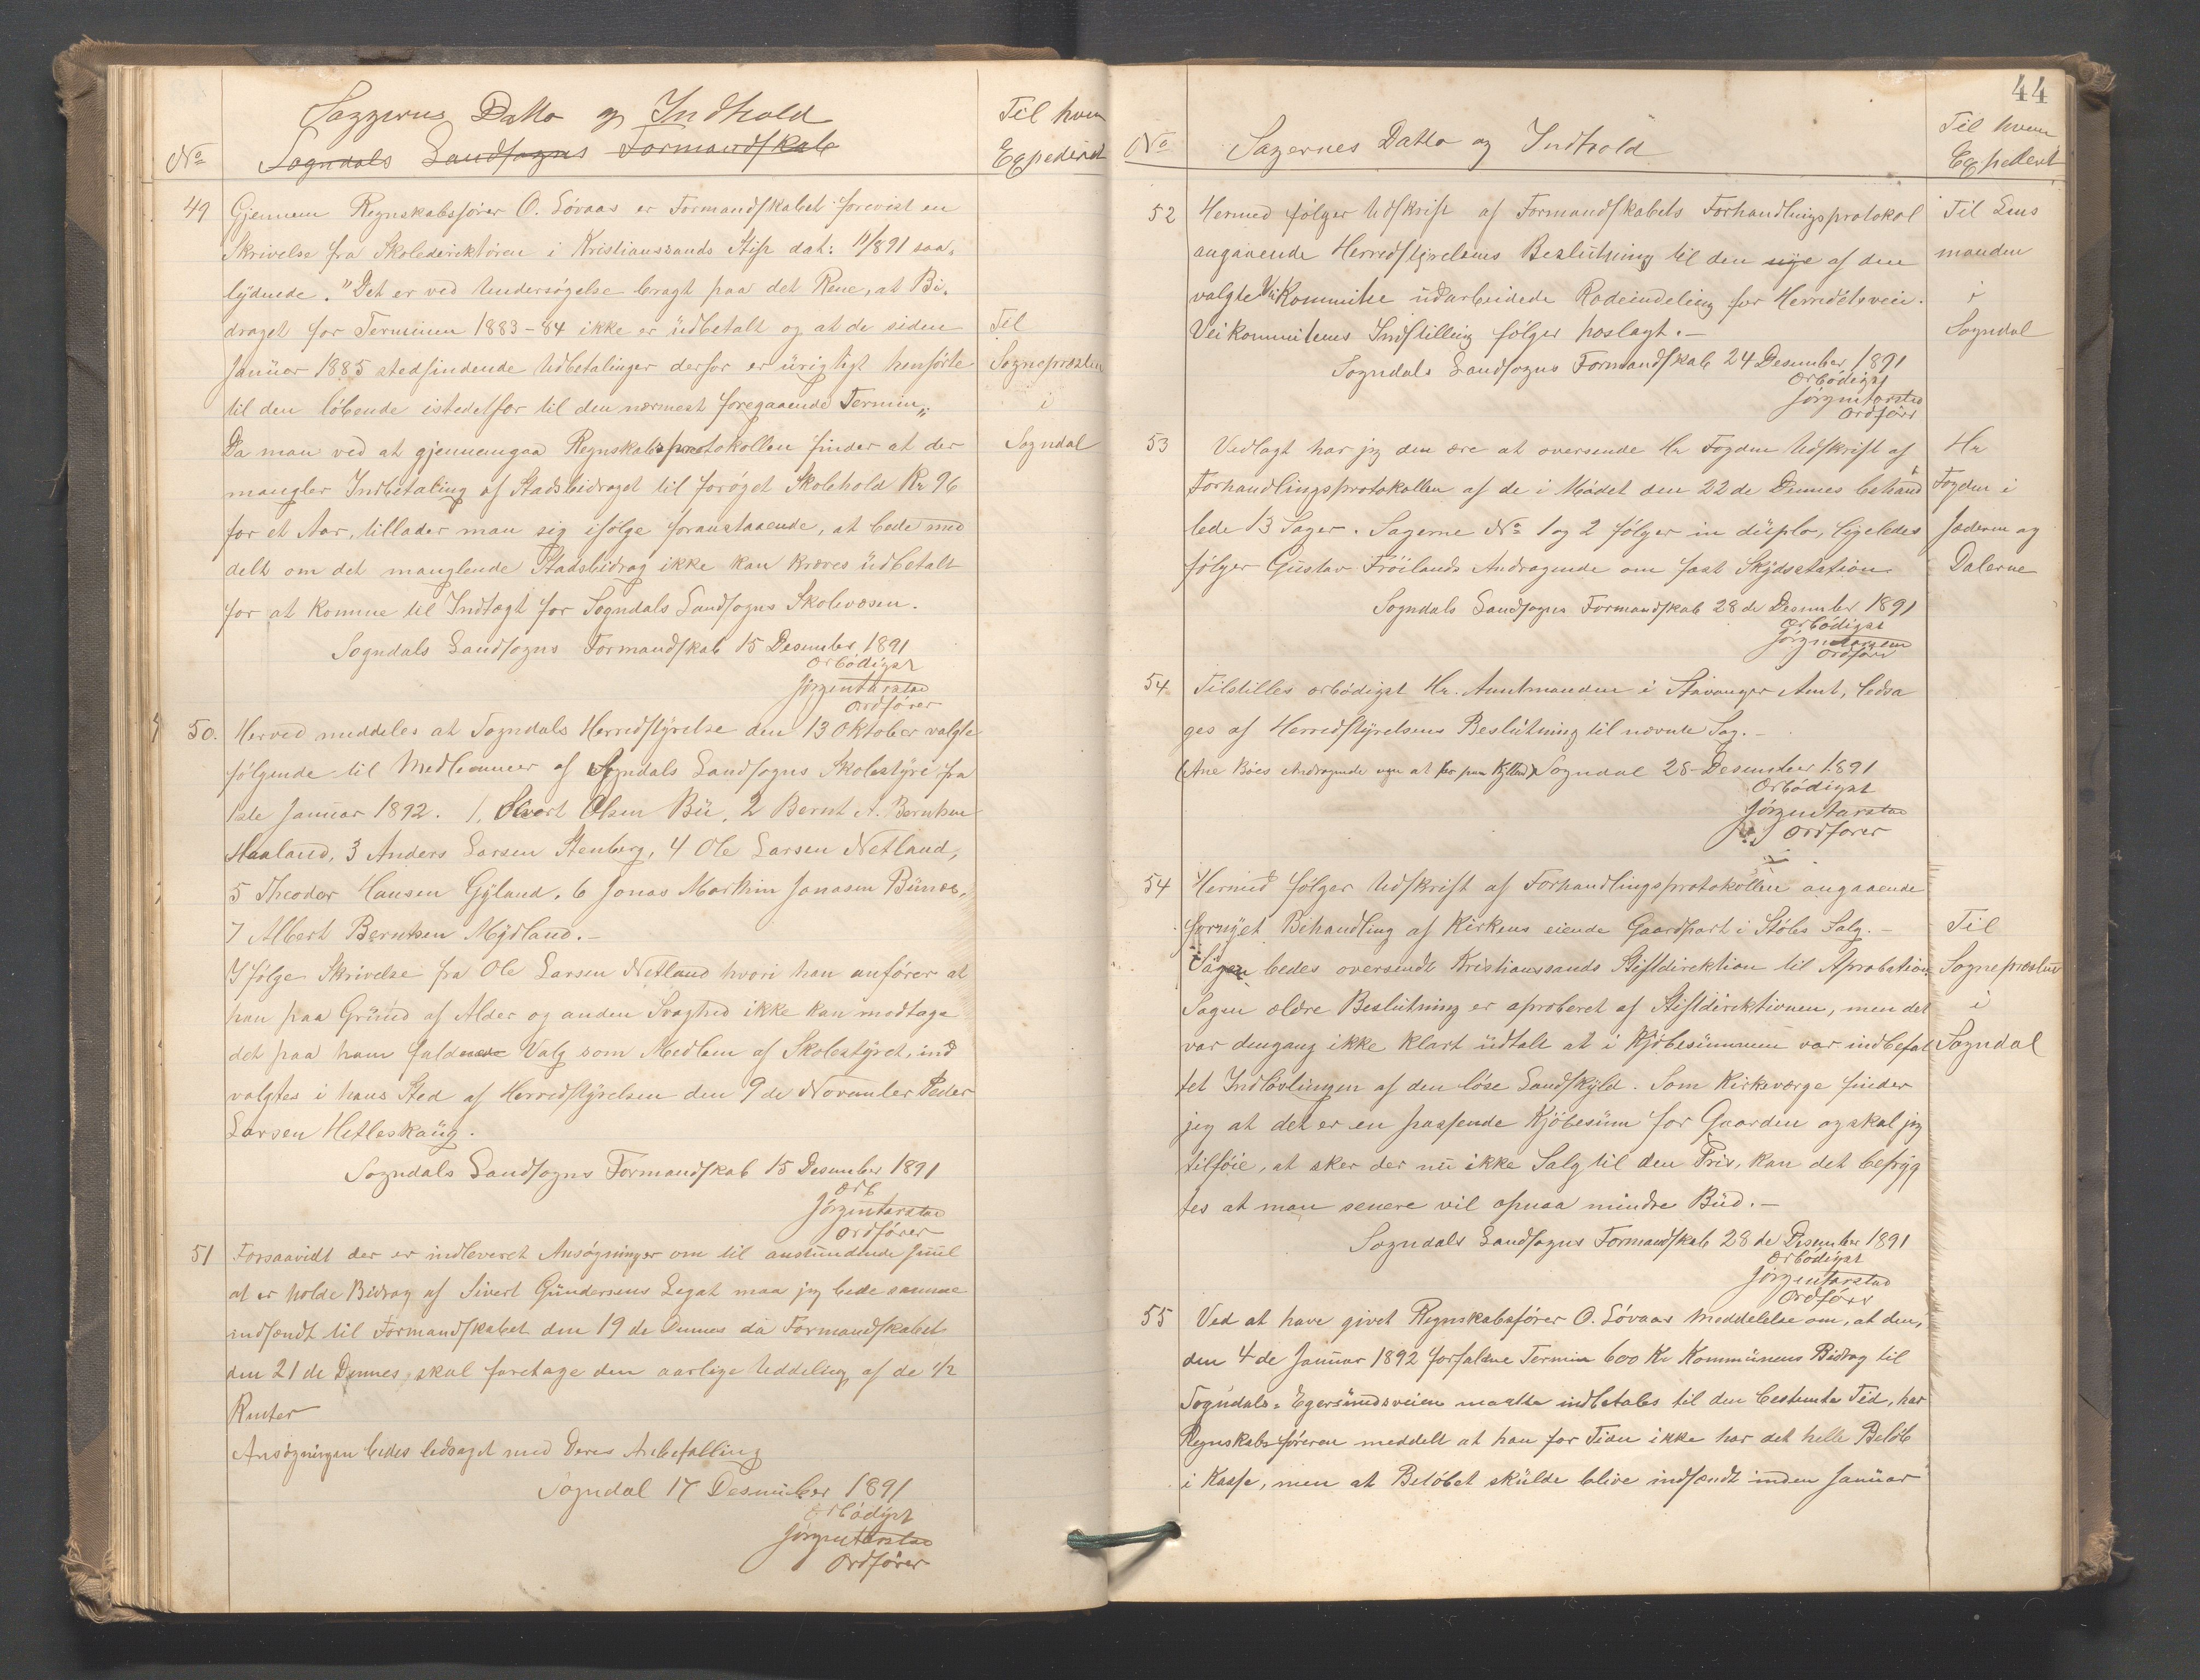 Saggernes Datto og Indhold
Sogndals Landsogns Formandskab
No
Til hvem
Expederet
49 Gjennem Regnskabsfører O. Løvaas er Formandskabet forevist en
Skrivelse fra Skoledirektøren i Kristianssands Stift dat: 11/891 saa-
lydende. "Det er ved Undersøgelse bragt paa det Rene, at Bi-
draget for Terminen 1883-84 ikke er udbetalt og at de siden
Januar 1885 stedfindende Udbetalinger derfor er urigtigt henførte
til den løbende istedetfor til den nærmest foregaaende Termin„
Da man ved at gjennemgaa Regnskabsprotokollen finder at der
mangler Indbetaling af Stadsbidraget til forøget Skolehold Kr 96
for et Aar, tillader man sig ifølge foranstaaende, at bede med
delt om det manglende Stadsbidrag ikke kan kræves udbetalt
for at komme til Indtægt for Sogndals Landsogns Skolevæsen.
Til
Sognepræsten
i
Sogndal
Sogndals Landsogns Formandskab 15 Desember 1891
Ærbødigst
Jørgen Tarstad
Ordfører
50. Herved meddeles at Sogndals Herredstyrelse den 13 Oktober valgte
følgende til Medlemmer af Sogndals Landsogns Skolestyre fra
1ste Januar 1892. 1, Sivert Olsen Bu, 2 Bernt A. Berntsen
Haaland, 3 Anders Larsen Stenberg, 4 Ole Larsen Netland,
5 Theodor Hansen Gyland, 6 Jonas Martin Jonasen Bunæs,
7 Albert Berntsen Mydland.-
Ifølge Skrivelse fra Ole Larsen Netland hvori han anfører at
han paa Grund af Alder og anden Svaghed ikke kan modtage
det paa ham faldne Valg som Medlem af Skolestyret, ind
valgtes i hans Sted af Herredstyrelsen den 9de November Peder
Larsen Hetleskaug.
Sogndals Landsogns Formandskab 15 Desember 1891
Ærb
Jørgen Tarstad
Ordfører
51 Forsaavidt der er indleveret Ansøgninger om til anstundende Juul
at er holde Bidrag af Sivert Gundersens Legat maa jeg bede samme
indsendt til Formandskabet den 19de Dennes da Formandskabet
den 21de Dennes, skal foretage den aarlige Uddeling af de 1/2
Renter
Ansøgningen bedes ledsaget med Deres Anbefalling
Sogndal 17 Desember 1891
Ærbødigst
Jørgen Tarstad
Ordfører
44
No
Sagernes Datto og Indhold
Til hvem
Expedert
52 Hermed følger Udskrift af Formandskabets Forhandlingsprotokol
angaaende Herredstyrelsens Beslutning til den nye af den
valgte Vei Kommitee udarbeidede Rodeindeling for Herredetsveie.
Vei Kommiteens Indstilling følger hoslagt.-
Til Lens
manden
i
Sogndal
Sogndals Landsogns Formandskab 24 Desember 1891
Ærbødigst
Jørgen Tarstad
Ordfører
53 Vedlagt har jeg den ære at oversende Hr Fogden Udskrift af
Forhandlingsprotokollen af de i Mødet den 22de Dennes behand
lede 13 Sager. Sagerne No 1 og 2 følger in duplo, ligeledes
følger Gustav Frøilands Andragende om fast Skydsstation
Hr
Fogden i
Jæderen og
Dalerne
Sogndals Landsogns Formandskab 28de Desember 1891
Ærbødigst
Jørgen Tarstad
Ordfører
54 Tilstilles ærbødigst Hr. Amtmanden i Stavanger Amt, ledsa
ges af Herredstyrelsens Beslutning til nævnte Sag.-
Sogndal 28 Desember 1891
Ærbødigst
Jørgen Tarstad
Ordfører
54 Hermed følger Udskrift af Forhandlingsprotokollen angaaende
fornyet Behandling af Kirkens eiende Gaardpart i Støles Salg.-
Sagen bedes oversendt Kristianssands Stiftdirektion til Aprobation
Sagen ældre Beslutning er aproberet af Stiftdirektionen, men det
var dengang ikke klart udtalt at i Kjøbesummen var indbefat
tet Indløsningen af den løse Landskyld. Som Kirkeværge finder
jeg at det er en passende Kjøbesum for Gaarden og skal jeg
tilføie, at sker der nu ikke Salg til den Pris, kan det befryg
tes at man senere vil opnaa mindre Bud.-
Til
Sognepræsten
i
Sogndal
Sogndals Landsogns Formandskab 28de Desember 1891
Ærbødigst
Jørgen Tarstad
Ordfører
55 Ved at have givet Regnskabsfører O. Løvaas Meddelelse om, at den,
den 4de Januar 1892 forfaldne Termin 600 Kr Kommunens Bidrag til
Sogndals-Egersundsveien maatte indbetales til den bestemte Tid, har
Regnskabsføreren meddelt at han for Tiden ikke har det helle Beløb
i Kasse, men at Beløbet skulde blive indsendt inden Januar